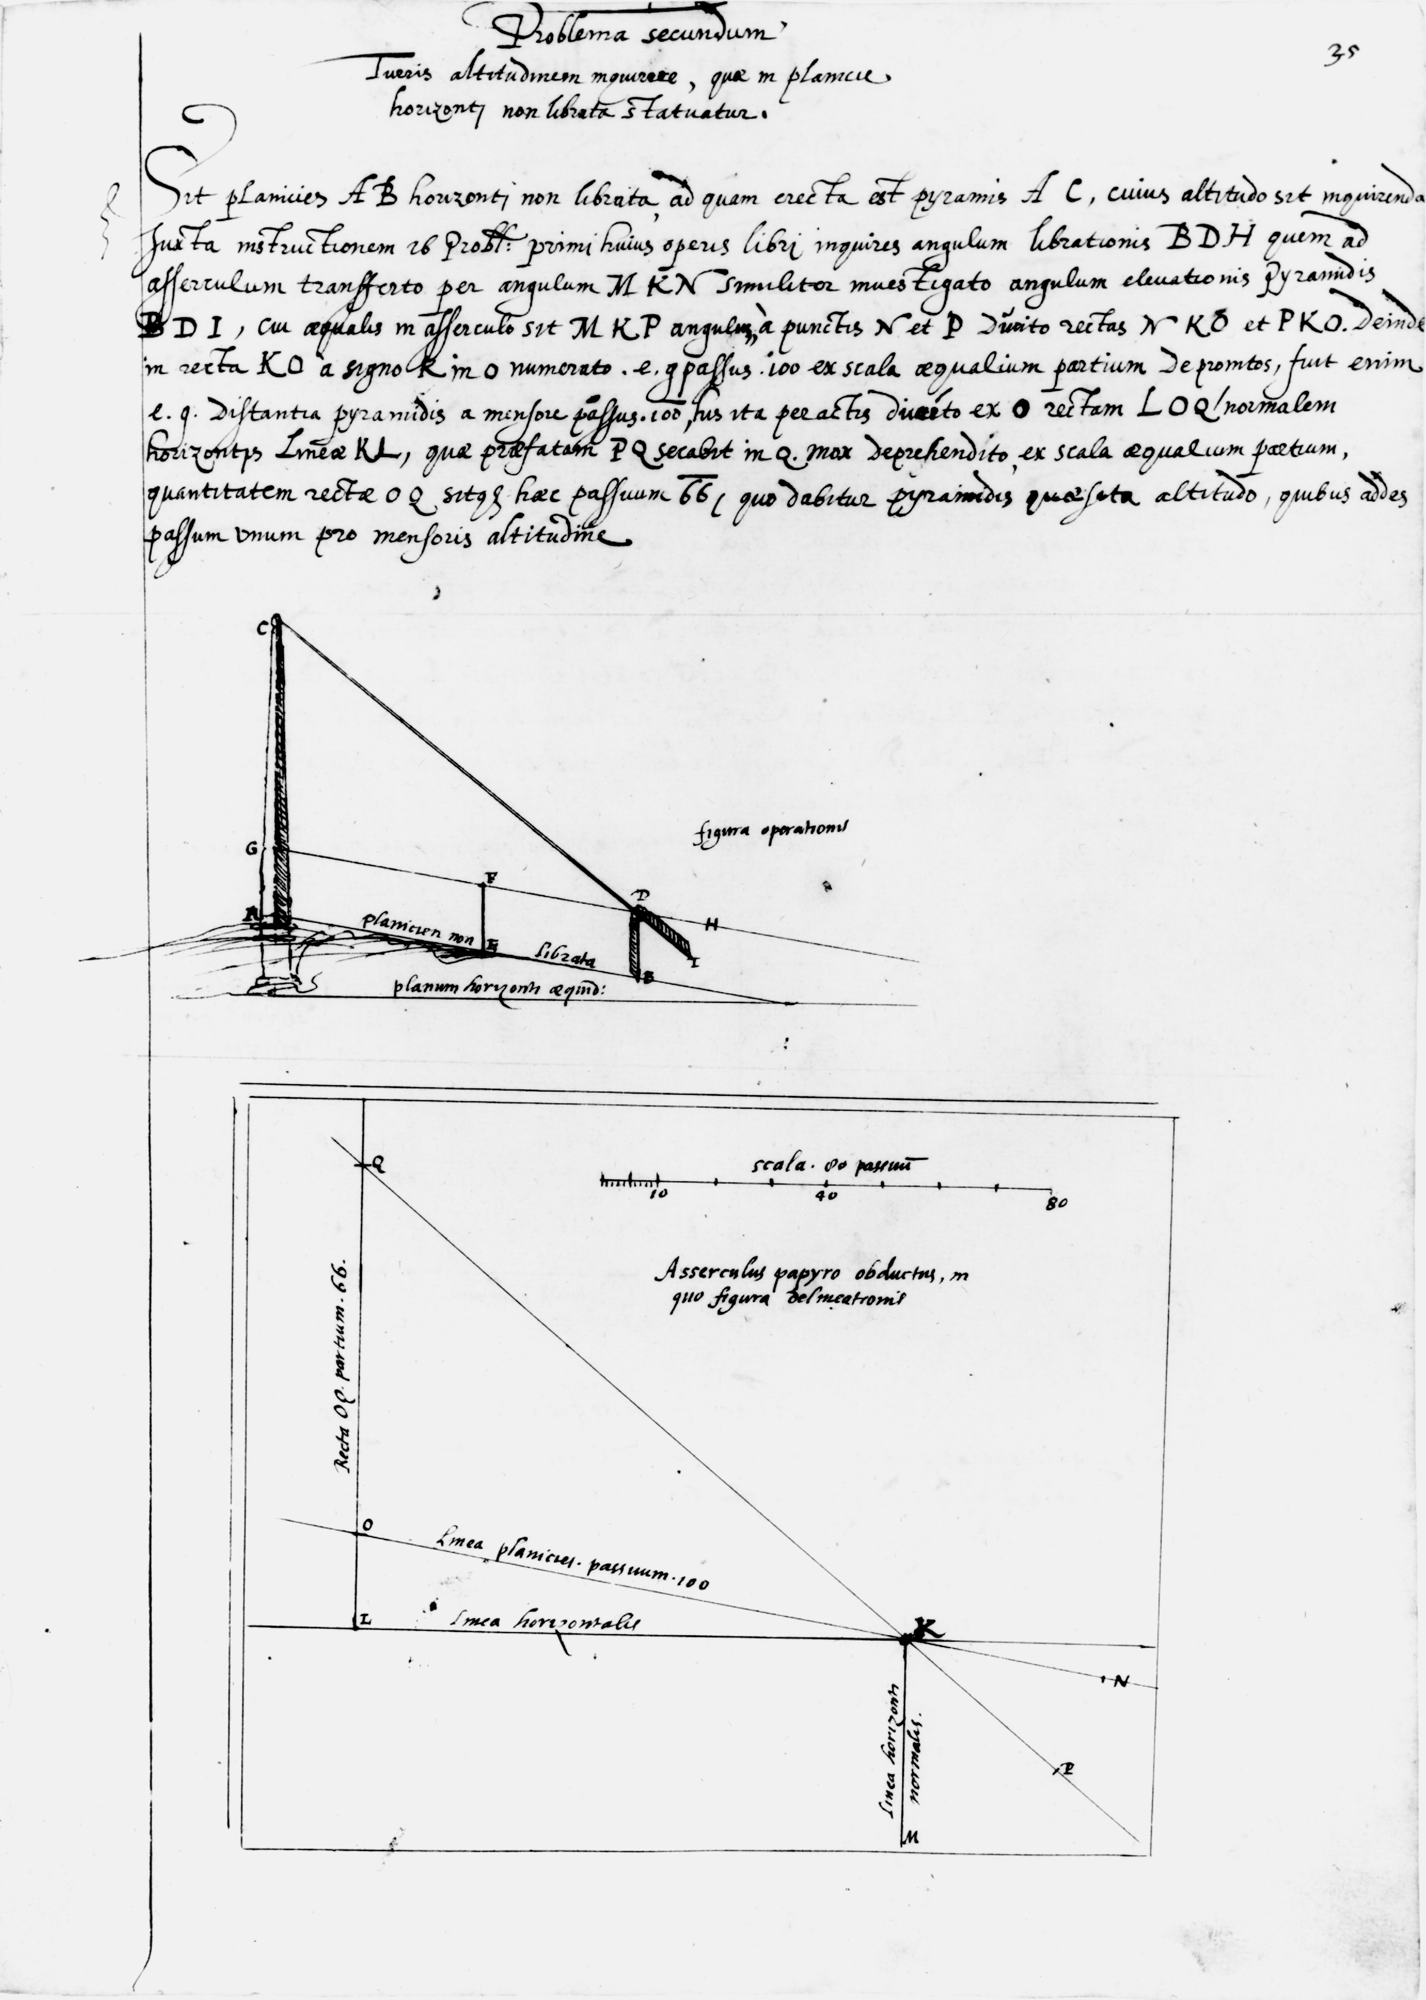 Problema secundum
35
Turris altitudinem inquirere, quæ in planicie
horizonti non librata statuatur.
Sit planicies A B horizonti non librata, ad quam erecta est pyramis A C, cuius altitudo sit inquirenda
Juxta instructionem 26 Probl: primi huius operis libri inquires angulum librationis B D H quem ad
asserculum transferto per angulum M K N Similiter inuestigato angulum eleuationis Pyramidis
B D I, cui æqualis in asserculo sit M K P angulus, à punctis N et P Ducito rectas N K O et P K O. Deinde
in recta K O à signo K in O numerato . e. g passus . 100 ex scala æqualium partium Depromtos, fuit enim
e. g. Distantia pyramidis a mensore passus. 100, his ita peractis ducito ex O rectam L O Q normalem
horizontis Lineæ K L, quæ præfatam P Q secabit in Q. mox Deprehendito ex scala æqualium partium,
quantitatem rectæ O Q sitq3 hæc passuum 66, quo dabitur pyramidis quæsita altitudo, quibus addes
passum vnum pro mensoris altitudine
C
figura operationis
G
F
D
H
A
planicien non
E
librata
I
B
planum horizonti æquid:
Q
scala. 80 passuū
10
40
80
Asserculus papyro obductus, in
quo figura delineationis
Recta OQ. partium. 66.
O
Linea planiciei. passuum. 100
L
Linea horizontalis
K
N
Linea horizonti
normalis.
P
M